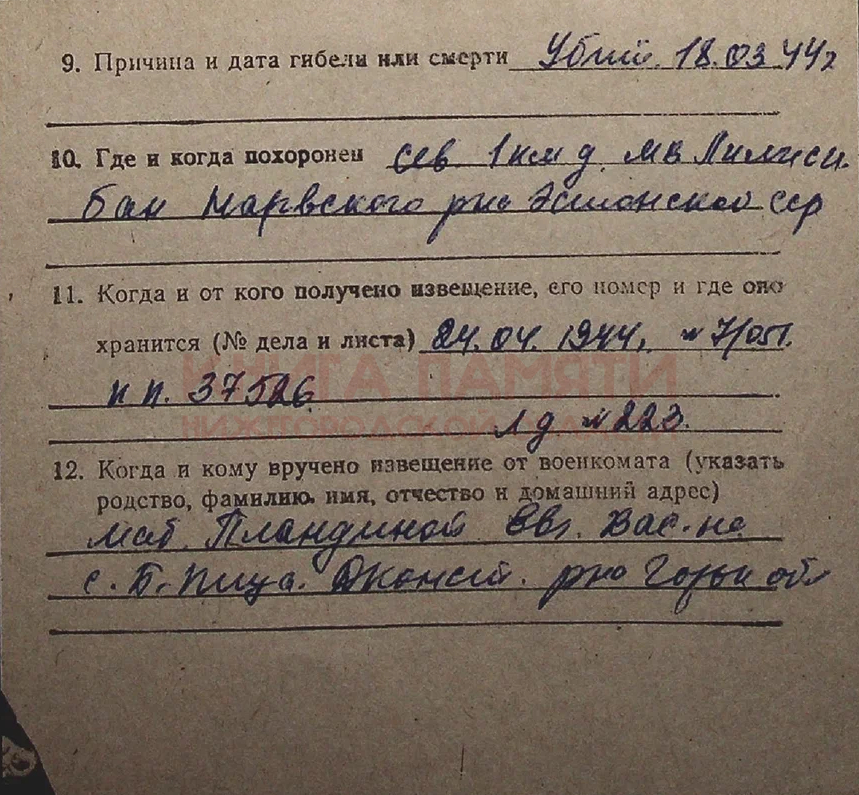 9. Причина и дата гибели или смерти Убит. 18.03 44г
10. Где и когда похоронен сев 1 км д. мв
бак Нарвского рно Эстонской сср
11. Когда и от кого получено извещение, его номер и где оно
хранится (№ дела и листа) 24.04. 1944,
п п. 37526
КНИГА ПАМЯТИ
НИЖЕГОРОДСКОЙ ОБЛАСТИ
лд №223.
12. Когда и кому вручено извещение от военкомата (указать
родство, фамилию, имя, отчество и домашний адрес)
Пландиной Вас. на
с. Б. Пица. рно Горьк обл